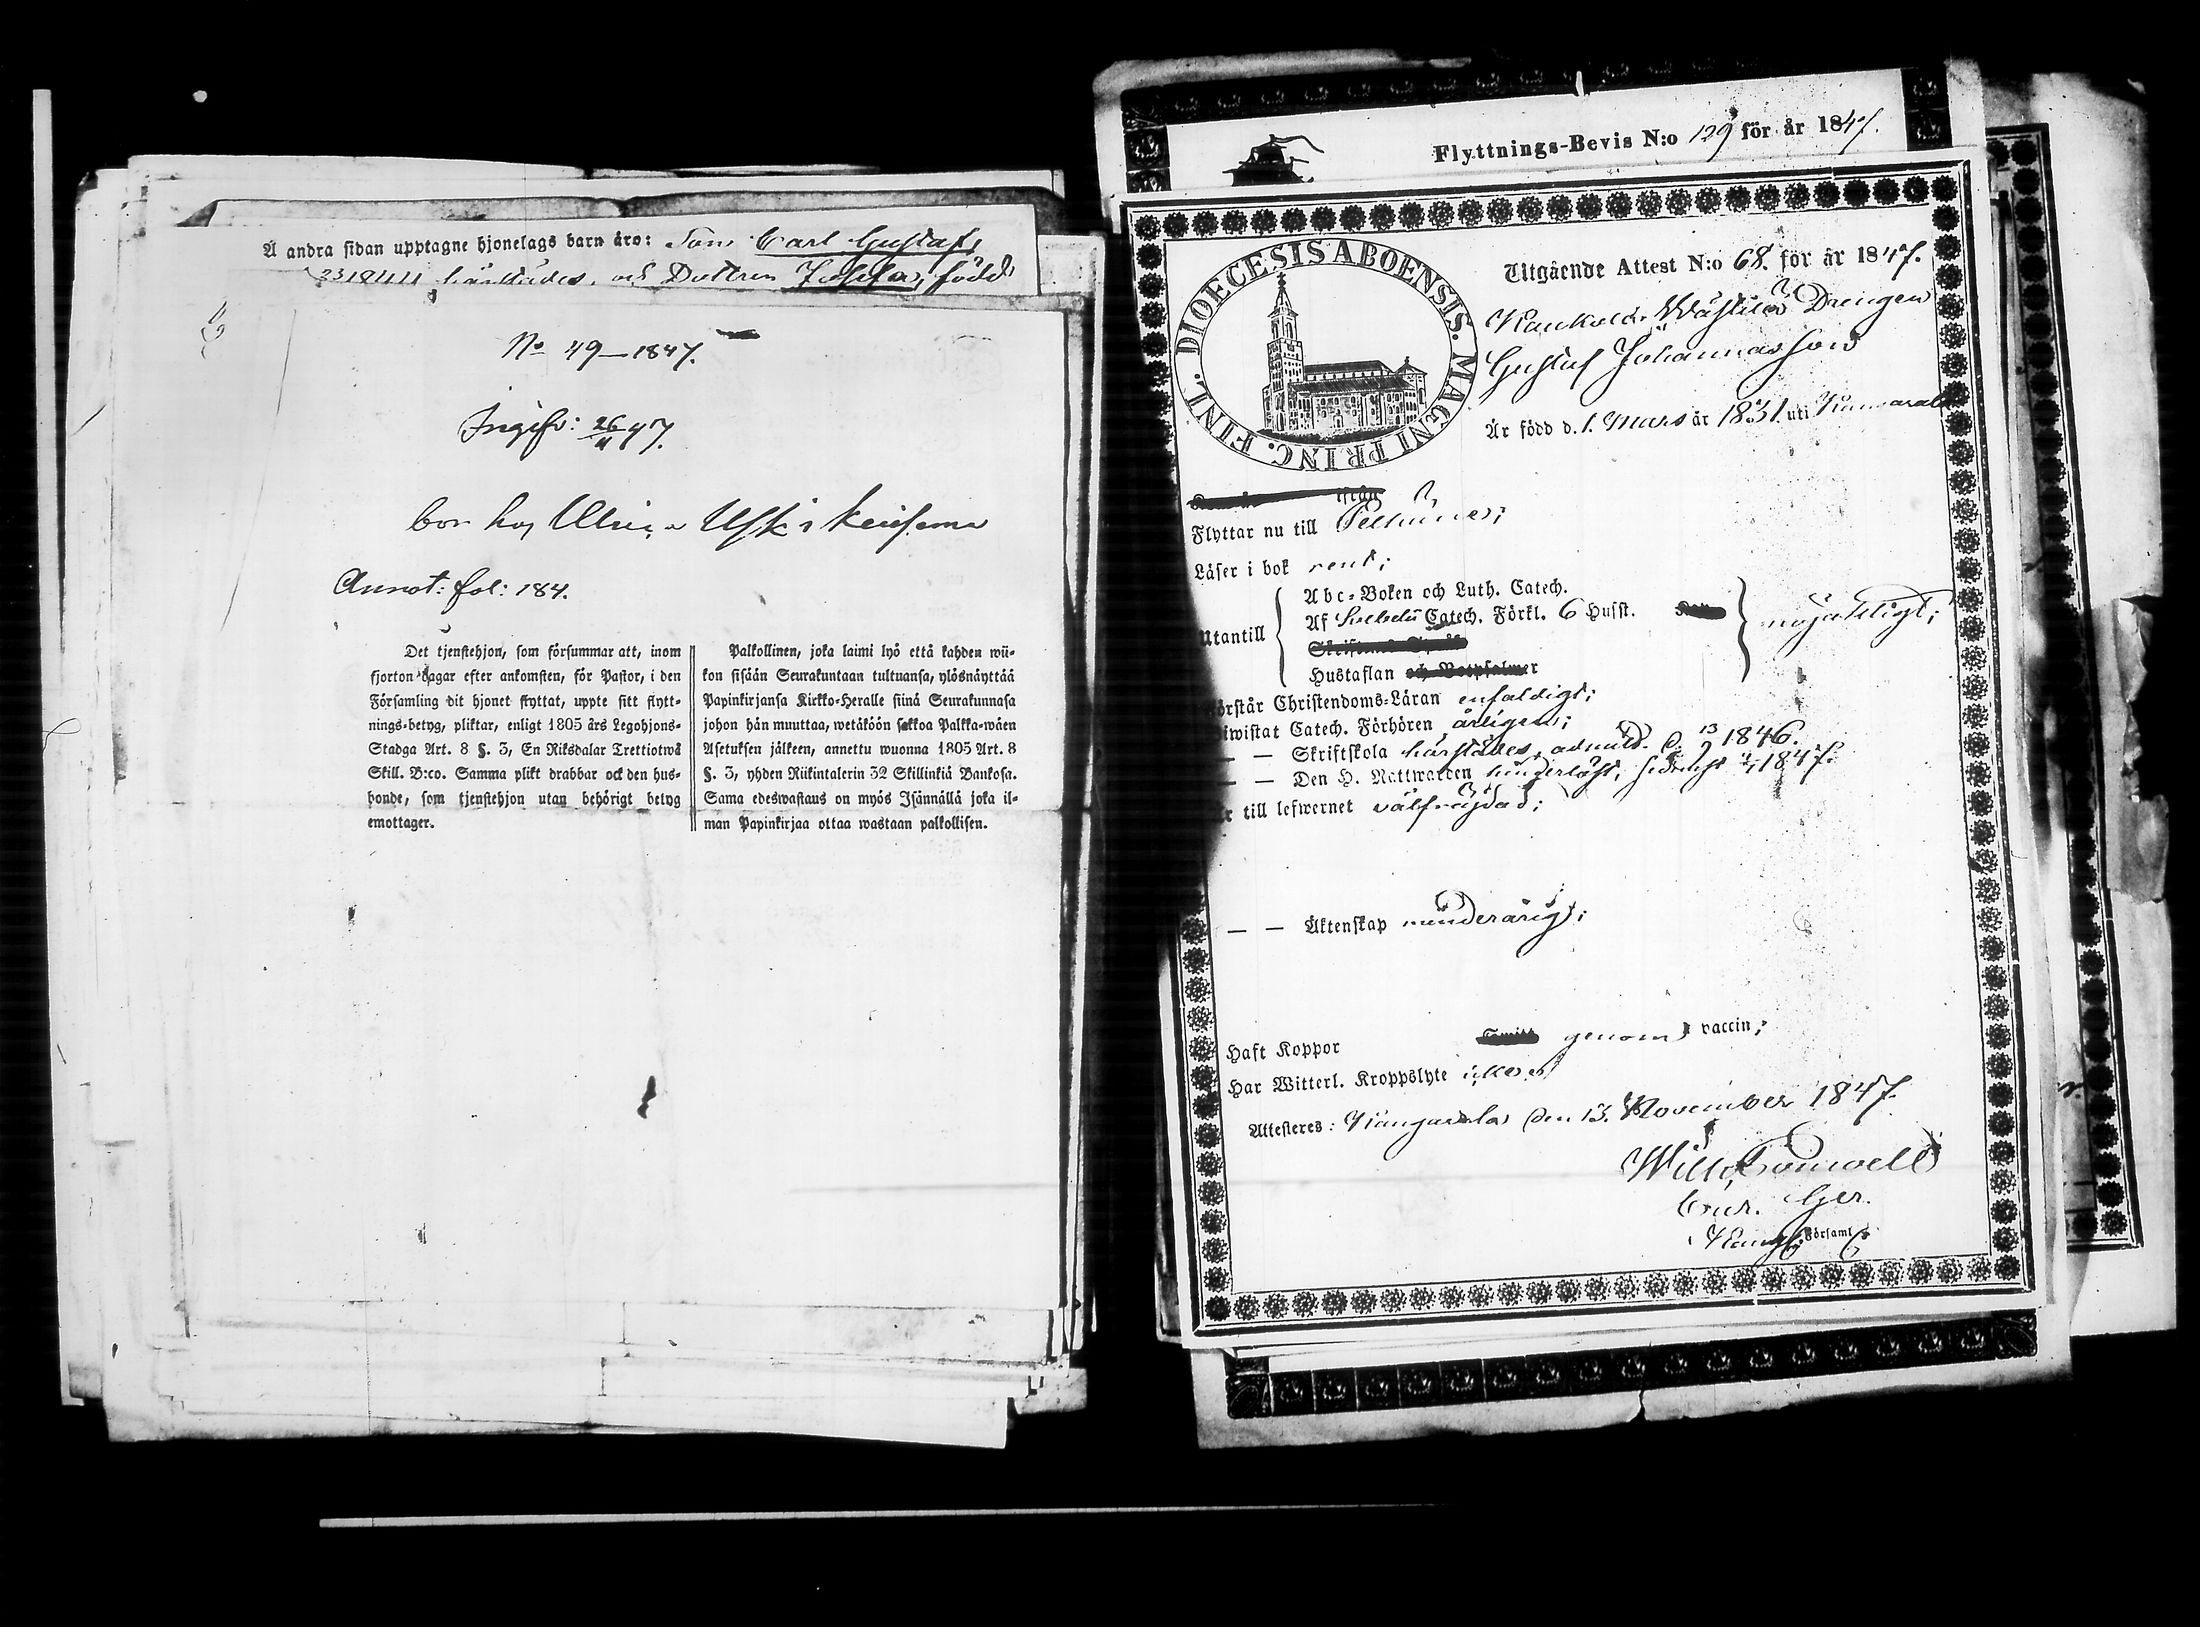 Å andra sidan upptagne hjonelags barn äro: Son Carl Gustaf,
härstädes, och Dottren Josefa, född
No 49—1847.
Ingifv: 26/11 47.
bor hos
Annot: fol: 184.
Det tjenstehjon, som försummar att, inom
fjorton dagar efter ankomsten, för Pastor, i den
Församling dit hjonet flyttat, uppte sitt flytt-
nings-betyg, pliktar, enligt 1805 års Legohjons-
Stadga Art. 8 §. 3, En Riksdalar Trettiotwå
Skill. B:co. Samma plikt drabbar ock den hus-
bonde, som tjenstehjon utan behörigt betyg
emottager.
Palkollinen, joka laimi lyö että kahden wii-
kon sisään Seurakuntaan tultuansa, ylösnäyttää
Papinkirjansa Kirkko-Heralle siinä Seurakunnasa
johon hän muuttaa, wetäköön sakkoa Palkka-wäen
Asetuksen jälkeen, annettu wuonna 1805 Art. 8
§. 3, yhden Riikintalerin 32 Skillinkiä Bankosa.
Sama edeswastaus on myös Isännällä joka il-
man Papinkirjaa ottaa wastaan palkollisen.
Flyttnings-Bevis N:o 129 för år 1847.
DIOECESIS ABOENSIS. MAGNI PRINC. FINL.
Utgående Attest N:o 68. för år 1847.
Drengen
Gustaf Johannesson
Är född d. 1. Mars år 1831. uti
ifrån
Flyttar nu till
Läser i bok rent;
Utantill
Abc-Boken och Luth. Catech.
Af Catech. Förkl. 6 Husst.
Hustaflan
nöjaktigt;
örstår Christendoms-Läran enfaldigt;
iwistat Catech. Förhören årligen;
— — Skriftskola härstädes, admitt. d. 13 1846.
— — Den H. Nattwarden sednast 1847.
r till lefwernet välfräjdad;
— — Äktenskap minderårig;
Haft Koppor genom vaccin;
Har Witterl. Kroppslyte
Attesteres: Kangasala den 13. November 1847.
Församl